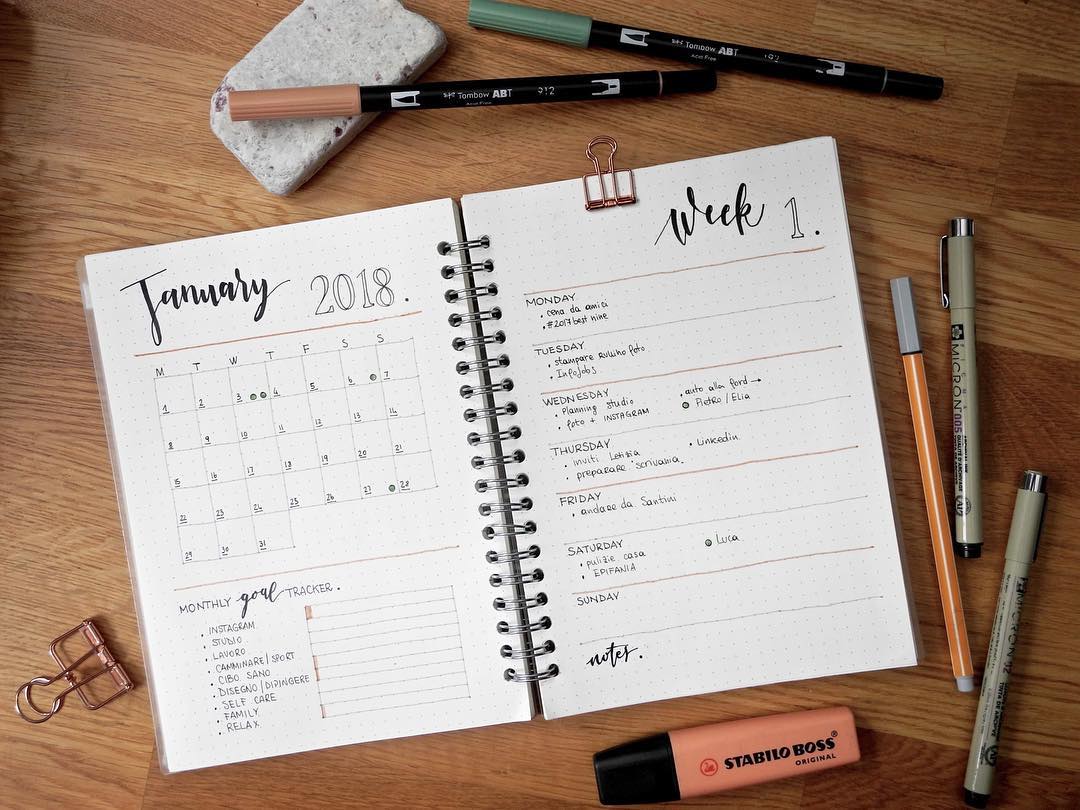 Tombow ABT
Acid Free
Tombow ABT 912
Acid Free
January 2018.
M T W T F S S
1 2 3 4 5 6 7
8 9 10 11 12 13 14
15 16 17 18 19 20 21
22 23 24 25 26 27 28
29 30 31
MONTHLY goal TRACKER.
• INSTAGRAM
• STUDIO
• LAVORO
• CAMMINARE/SPORT
• CIBO SANO
• DISEGNO/DIPINGERE
• SELF CARE
• FAMILY
• RELAX
Week 1.
MONDAY
• cena da amici
• #2017best nine
TUESDAY
• stampare rullino foto
• InfoJobs
WEDNESDAY
• planning studio
• foto + INSTAGRAM
• auto alla ford →
Pietro / Elia
THURSDAY
• inviti Letizia
• preparare scrivania
• Linkedin
FRIDAY
• andare da Santini
SATURDAY
• pulizie casa
• EPIFANIA
Luca
SUNDAY
notes.
MICRON 005
STABILO BOSS
ORIGINAL